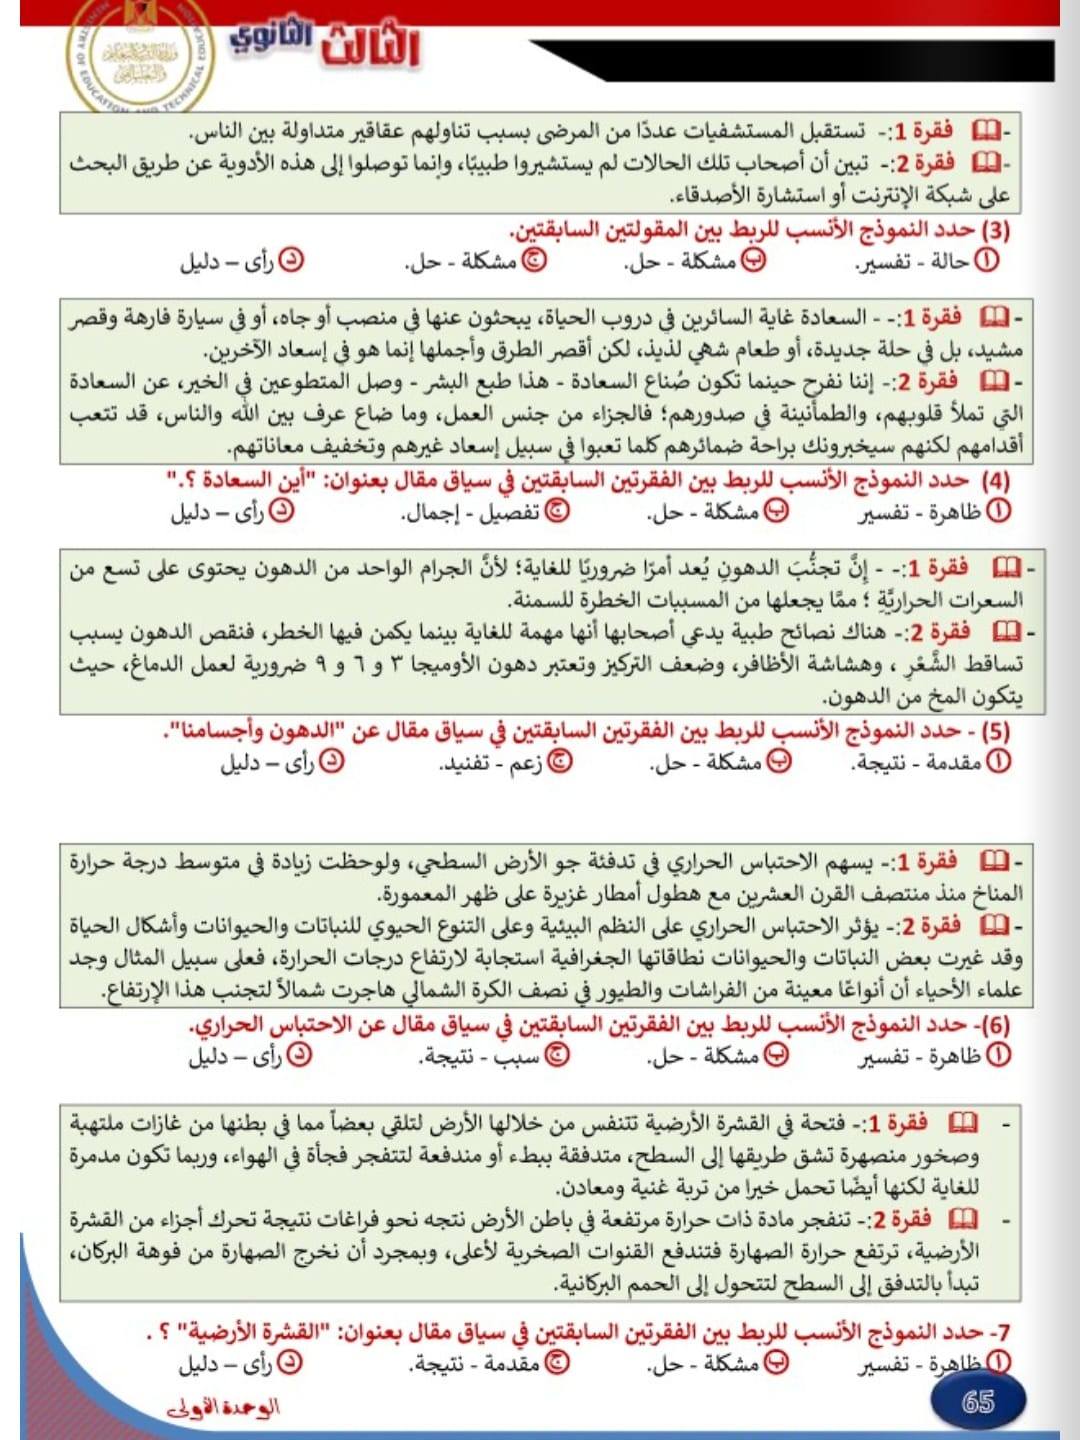 MINISTRY OF EDUCATION AND TECHNICAL EDUCATION
الثالث الثانوي
- فقرة 1:- تستقبل المستشفيات عددًا من المرضى بسبب تناولهم عقاقير متداولة بين الناس.
- فقرة 2:- تبين أن أصحاب تلك الحالات لم يستشيروا طبيبًا، وإنما توصلوا إلى هذه الأدوية عن طريق البحث
على شبكة الإنترنت أو استشارة الأصدقاء.
(3) حدد النموذج الأنسب للربط بين المقولتين السابقتين.
أ حالة - تفسير. ب مشكلة - حل. ج مشكلة - حل. د رأى – دليل
- فقرة 1:- - السعادة غاية السائرين في دروب الحياة، يبحثون عنها في منصب أو جاه، أو في سيارة فارهة وقصر
مشيد، بل في حلة جديدة، أو طعام شهي لذيذ، لكن أقصر الطرق وأجملها إنما هو في إسعاد الآخرين.
- فقرة 2:- إننا نفرح حينما تكون صُناع السعادة - هذا طبع البشر - وصل المتطوعين في الخير، عن السعادة
التي تملأ قلوبهم، والطمأنينة في صدورهم؛ فالجزاء من جنس العمل، وما ضاع عرف بين الله والناس، قد تتعب
أقدامهم لكنهم سيخبرونك براحة ضمائرهم كلما تعبوا في سبيل إسعاد غيرهم وتخفيف معاناتهم.
(4) حدد النموذج الأنسب للربط بين الفقرتين السابقتين في سياق مقال بعنوان: "أين السعادة ؟."
أ ظاهرة - تفسير ب مشكلة - حل. ج تفصيل - إجمال. د رأى – دليل
- فقرة 1:- - إنَّ تجنُّبَ الدهونِ يُعد أمرًا ضروريًا للغاية؛ لأنَّ الجرام الواحد من الدهون يحتوى على تسع من
السعرات الحراريَّةِ ؛ ممَّا يجعلها من المسببات الخطرة للسمنة.
- فقرة 2:- هناك نصائح طبية يدعي أصحابها أنها مهمة للغاية بينما يكمن فيها الخطر، فنقص الدهون يسبب
تساقط الشَّعْرِ ، وهشاشة الأظافر، وضعف التركيز وتعتبر دهون الأوميجا ٣ و ٦ و ٩ ضرورية لعمل الدماغ، حيث
يتكون المخ من الدهون.
(5) - حدد النموذج الأنسب للربط بين الفقرتين السابقتين في سياق مقال عن "الدهون وأجسامنا".
أ مقدمة - نتيجة. ب مشكلة - حل. ج زعم - تفنيد. د رأى – دليل
- فقرة 1:- يسهم الاحتباس الحراري في تدفئة جو الأرض السطحي، ولوحظت زيادة في متوسط درجة حرارة
المناخ منذ منتصف القرن العشرين مع هطول أمطار غزيرة على ظهر المعمورة.
- فقرة 2:- يؤثر الاحتباس الحراري على النظم البيئية وعلى التنوع الحيوي للنباتات والحيوانات وأشكال الحياة
وقد غيرت بعض النباتات والحيوانات نطاقاتها الجغرافية استجابة لارتفاع درجات الحرارة، فعلى سبيل المثال وجد
علماء الأحياء أن أنواعًا معينة من الفراشات والطيور في نصف الكرة الشمالي هاجرت شمالاً لتجنب هذا الإرتفاع.
(6)- حدد النموذج الأنسب للربط بين الفقرتين السابقتين في سياق مقال عن الاحتباس الحراري.
أ ظاهرة - تفسير ب مشكلة - حل. ج سبب - نتيجة. د رأى – دليل
- فقرة 1:- فتحة في القشرة الأرضية تتنفس من خلالها الأرض لتلقي بعضاً مما في بطنها من غازات ملتهبة
وصخور منصهرة تشق طريقها إلى السطح، متدفقة ببطء أو مندفعة لتتفجر فجأة في الهواء، وربما تكون مدمرة
للغاية لكنها أيضًا تحمل خيرا من تربة غنية ومعادن.
- فقرة 2:- تنفجر مادة ذات حرارة مرتفعة في باطن الأرض نتجه نحو فراغات نتيجة تحرك أجزاء من القشرة
الأرضية، ترتفع حرارة الصهارة فتندفع القنوات الصخرية لأعلى، وبمجرد أن نخرج الصهارة من فوهة البركان،
تبدأ بالتدفق إلى السطح لتتحول إلى الحمم البركانية.
7- حدد النموذج الأنسب للربط بين الفقرتين السابقتين في سياق مقال بعنوان: "القشرة الأرضية" ؟ .
أ ظاهرة - تفسير ب مشكلة - حل. ج مقدمة - نتيجة. د رأى – دليل
65
الوحدة الأولى